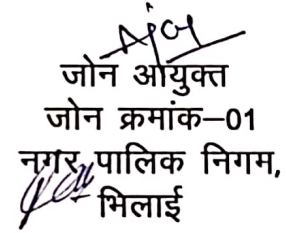 जोन आयुक्त
जोन क्रमांक–01
नगर पालिक निगम,
भिलाई